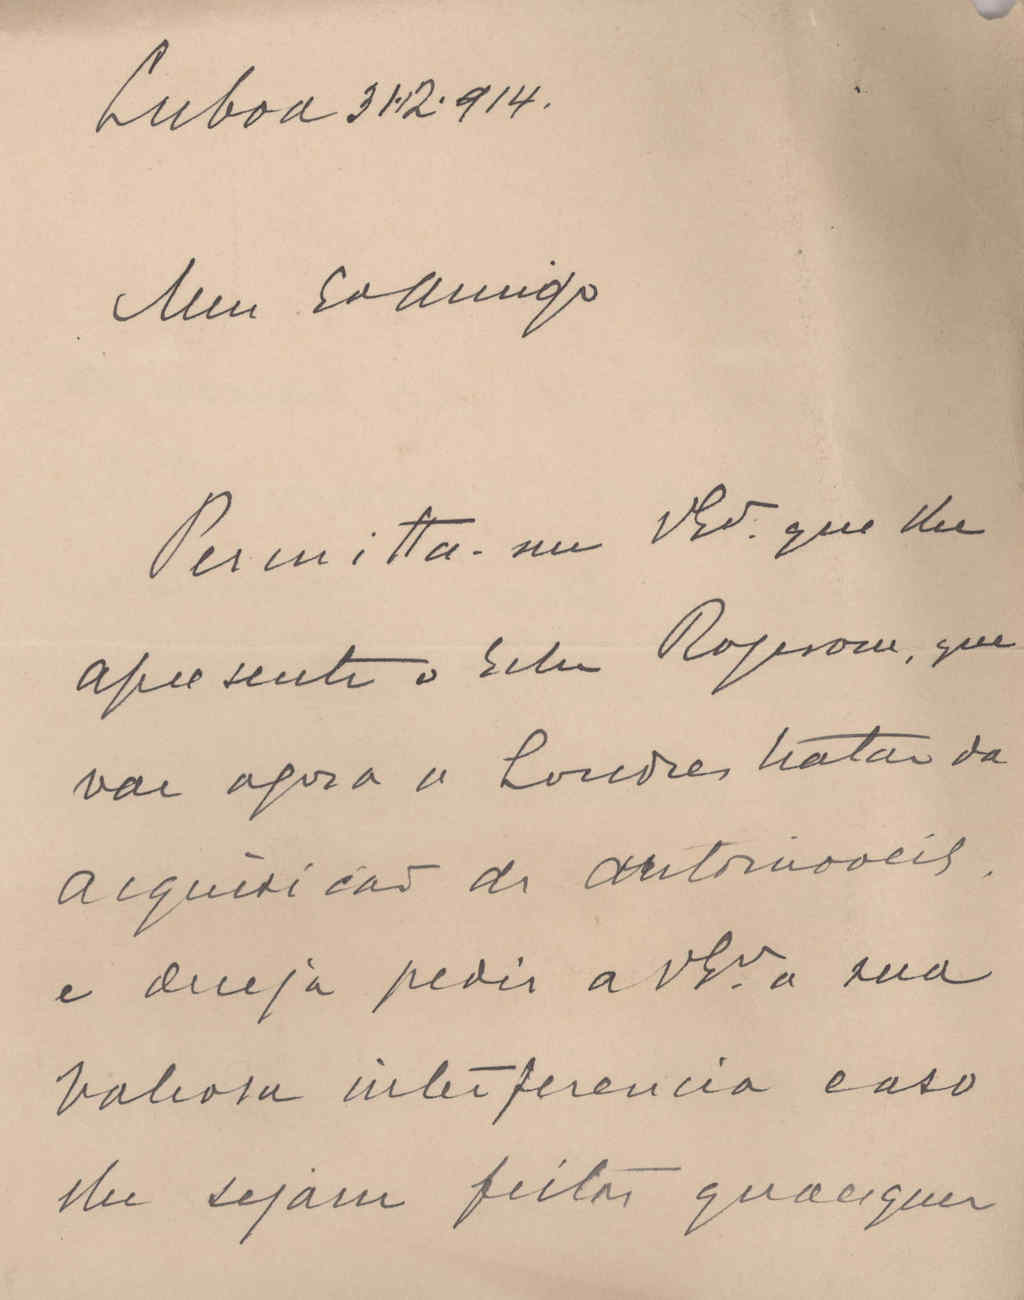 Lisboa 31.12.914.
Meu Exo Amigo
Permitta-me VExª. que lhe
apresente o
 que
vae agora a Londres tratar da
acquisicão de automoveis.
e deseja pedir a VExª. a sua
valiosa interferencia caso
lhe sejam feitas quaesquer